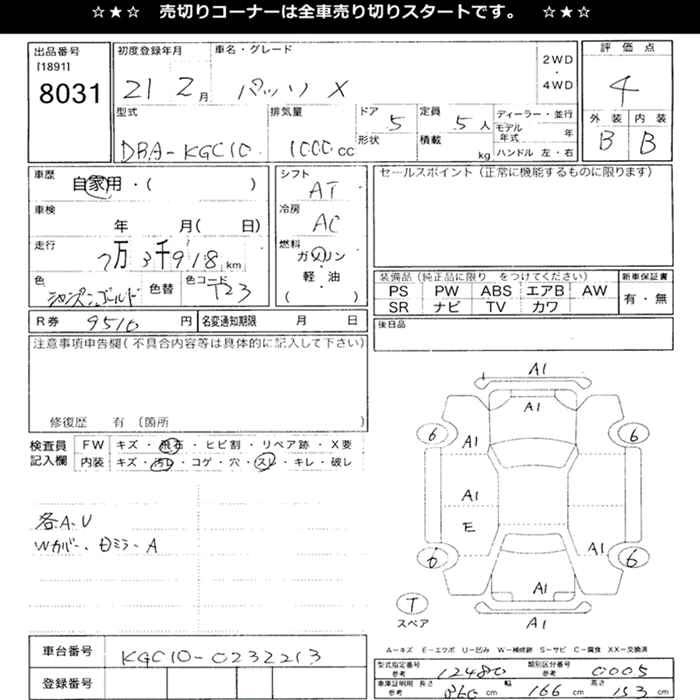 ☆★☆ 売切りコーナーは全車売り切りスタートです。 ☆★☆
出品番号
[1891]
8031
初度登録年月
21 2月
車名・グレード
パッソ X
2WD
・
4WD
評価点
4
外装 内装
B B
型式
DBA-KGC10
排気量
1000cc
ドア 5
形状
定員 5人
積載 kg
ディーラー・並行
モデル年式 年
ハンドル 左・右
車歴
自家用・( )
車検
年 月( 日)
走行
7万3千918km
色
シャンペンゴールド
色替
色コード
T23
シフト
AT
冷房
AC
燃料
ガソリン
軽・油
( )
セールスポイント(正常に機能するものに限ります)
装備品(純正品に限り をつけてください)
PS PW ABS エアB AW
SR ナビ TV カワ
新車保証書
有・無
R券 9510 円
名変通知期限 月 日
後日品
注意事項申告欄(不具合内容等は具体的に記入して下さい)
修復歴 有(箇所 )
検査員
記入欄
FW キズ・飛石・ヒビ割・リペア跡・X要
内装 キズ・汚レ・コゲ・穴・スレ・キレ・破レ
各A.U
Wカバー、ミラーA
A1
A1
6 6
A1
A1
E
A1
6 6
A1
A1
T
スペア
A-キズ E-エクボ U-凹み W-補修跡 S-サビ C-腐食 XX-交換済
車台番号 KGC10-0232213
登録番号
型式指定番号
参考
12480
類別区分番号
参考
0005
車庫証明用 長さ
参考
360cm
幅
166cm
高さ
153cm